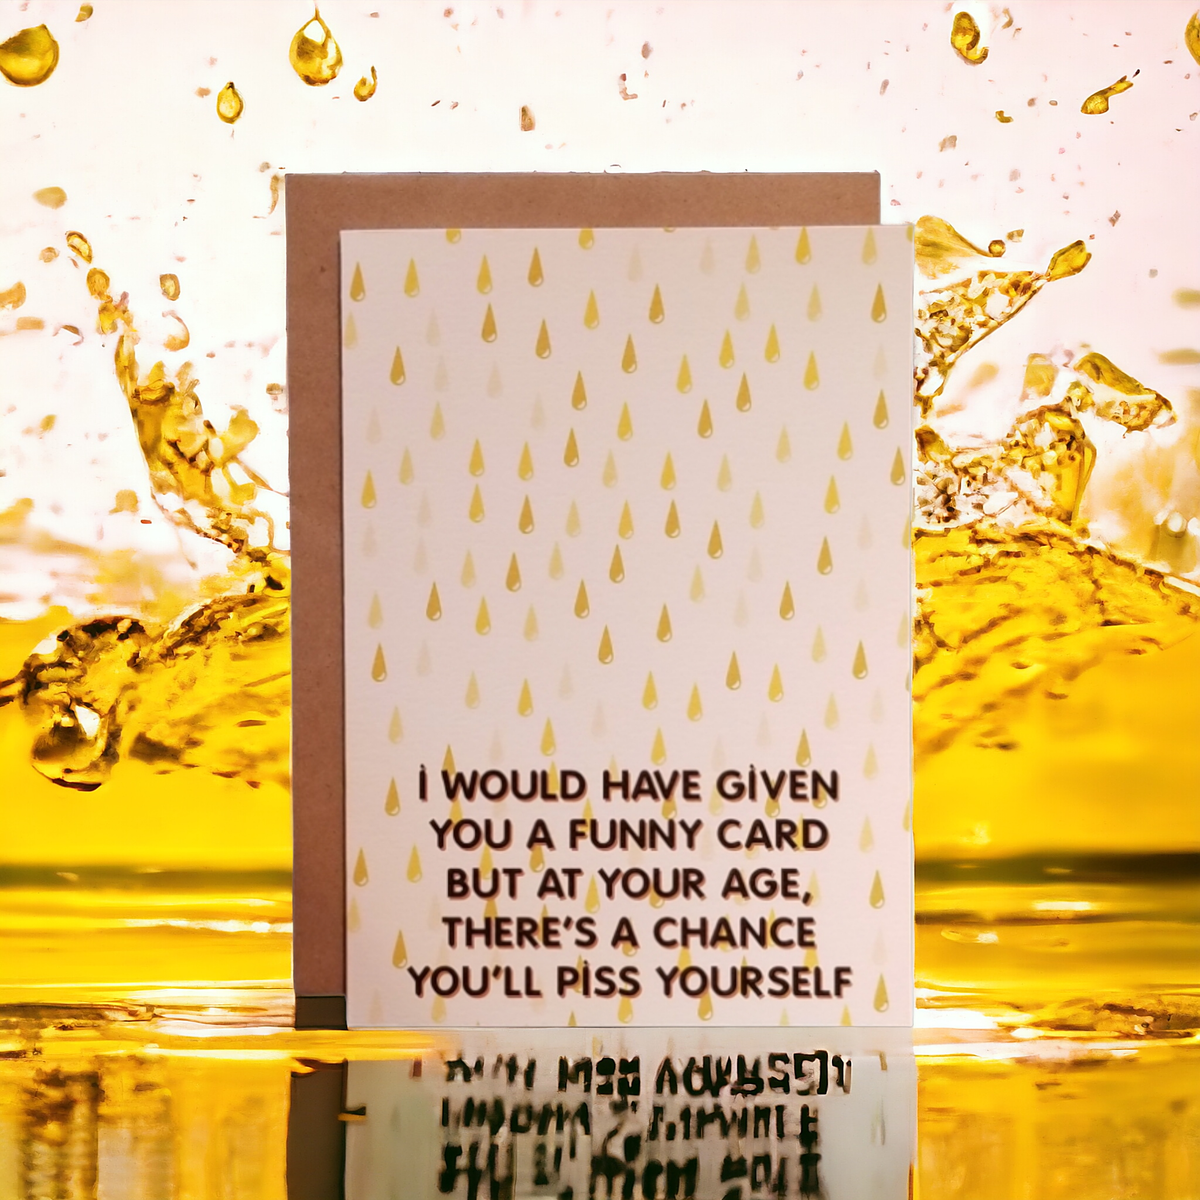 i WOULD HAVE GiVEN
YOU A FUNNY CARD
BUT AT YOUR AGE,
THERE'S A CHANCE
YOU'LL PiSS YOURSELF